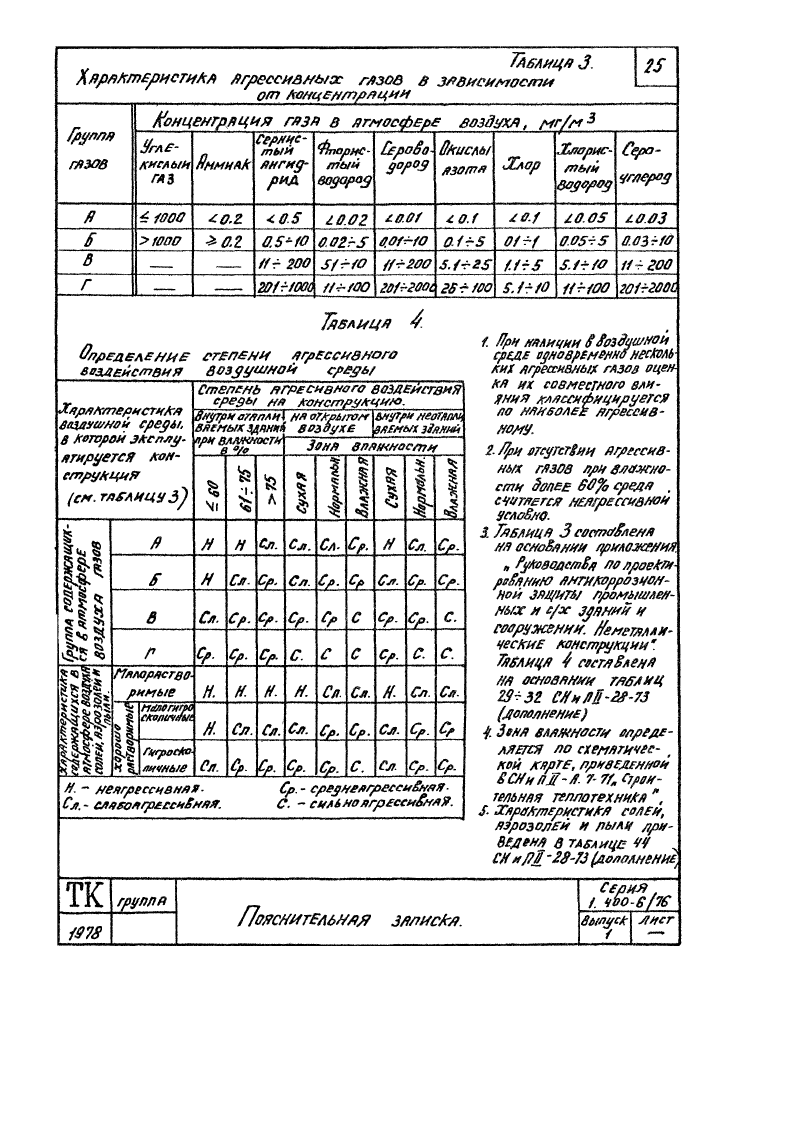 Таблица 3.
25
Характеристика агрессивных газов в зависимости
от концентрации
Группа газов
Концентрация газа в атмосфере воздуха, мг/м3
Углекислый газ Аммиак Сернистый ангидрид Фтористый водород Сероводород Окислы азота Хлор Хлористый водород Сероуглерод
А ≤ 1000 <0.2 <0.5 <0.02 <0.01 <0.1 <0.1 <0.05 <0.03
Б >1000 ≥ 0.2 0.5÷10 0.02÷5 0.01÷10 0.1÷5 01÷1 0.05÷5 0.03÷10
В — — 11÷200 51÷10 11÷200 5.1÷25 1.1÷5 5.1÷10 11÷200
Г — — 201÷1000 11÷100 201÷2000 26÷100 5.1÷10 11÷100 201÷2000
Таблица 4.
Определение степени агрессивного
воздействия воздушной среды
Характеристика
воздушной среды,
в которой эксплу-
атируется кон-
струкция
(см. таблицу 3)
Степень агресивного воздействия
среды на конструкцию.
Внутри отапли
ваемых зданий
при влажности
в %
на открытом
воздухе
Внутри неотапли
ваемых зданий
Зона влажности
≤ 60 61÷75 > 75 Сухая Нормальн. Влажная Сухая Нормальн. Влажная
Группа содержащих-
ся в атмосфере
воздуха газов
А Н Н Сл. Сл. Сл. Ср. Н Сл. Ср.
Б Н Сл. Ср. Ср. Ср. Ср Сл. Ср. Ср.
В Сл. Ср. Ср. Ср. Ср С Ср. Ср. С.
Г Ср. Ср. Ср. С. С С Ср. С. С.
Характеристика
содержащихся в
атмосфере воздуха
солей, аэрозолей и
пыли.
Малораство-
римые Н. Н. Н. Н. Сл. Сл. Н. Сл. Сл.
хорошо
растворимые
Малогигро
скопичные Н. Сл. Сл. Сл. Сл. Ср. Сл. Ср. Ср
Гигроско-
пичные Сл. Ср. Ср. Ср. Ср. С. Сл. Ср. Ср.
Н. - неагрессивная. Ср. - среднеагрессивная.
Сл. - слабоагрессивная. С. - сильноагрессивная.
1. При наличии в воздушной
среде одновременно несколь-
ких агрессивных газов оцен-
ка их совместного вли-
яния классифицируется
по наиболее агрессив-
ному.
2. При отсутствии агрессив-
ных газов при влажно-
сти более 60% среда
считается неагрессивной
условно.
3. Таблица 3 составлена
на основании приложения
„Руководства по проекти-
рованию антикоррозион-
ной защиты промышлен-
ных и с/х зданий и
сооружении. Неметалли-
ческие конструкции".
Таблица 4 составлена
на основании таблиц
29÷32 СНиПII-28-73
(дополнение)
4. Зона влажности опреде-
ляется по схематичес-
кой карте, приведенной
в СНиПII-А.7-71„Строи-
тельная теплотехника",
5. Характеристика солей,
аэрозолей и пыли при-
ведена в таблице 44
СНиПII-28-73 (дополнение)
ТК группа
1978
Пояснительная записка.
Серия
1.400-6/76
Выпуск
1
Лист
—